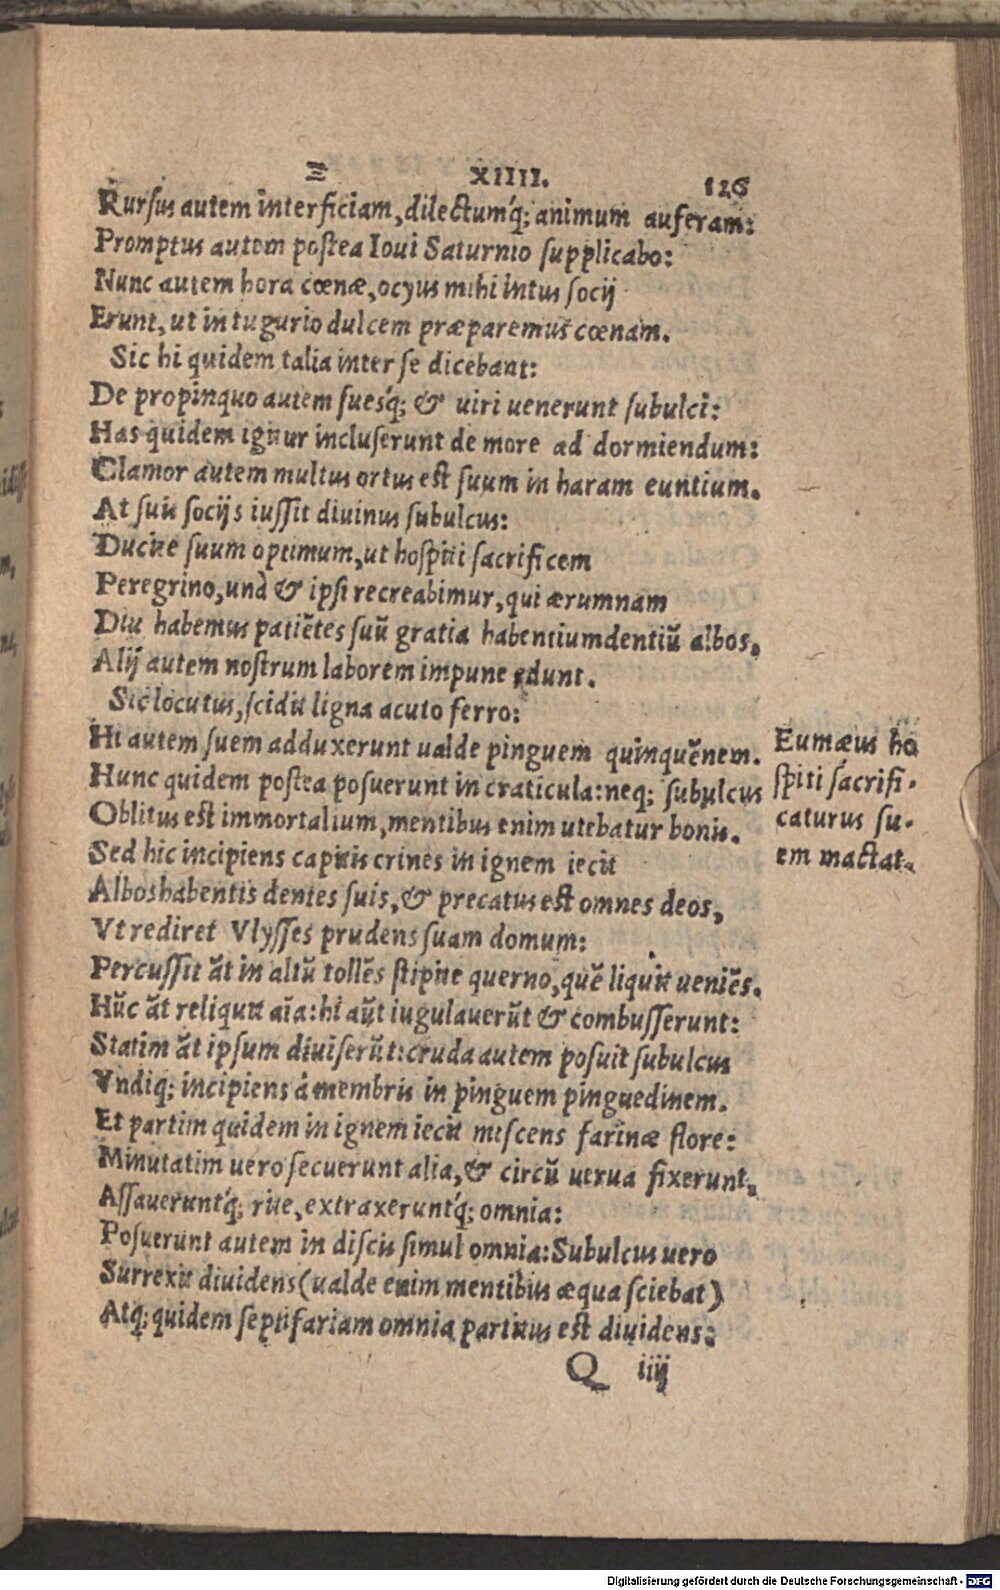 Ξ XIIII. 126
Rursus autem interficiam, dilectumq́; animum auferam:
Promptus autem postea Ioui Saturnio supplicabo:
Nunc autem hora cœnæ, ocyus mihi intus socij
Erunt, ut in tugurio dulcem præparemus cœnam.
Sic hi quidem talia inter se dicebant:
De propinquo autem suesq́; & uiri uenerunt subulci:
Has quidem igitur incluserunt de more ad dormiendum:
Clamor autem multus ortus est suum in haram euntium.
At suis socijs iussit diuinus subulcus:
Ducite suum optimum, ut hospiti sacrificem
Peregrino, unà & ipsi recreabimur, qui ærumnam
Diu habemus patiẽtes suũ gratia habentiumdentiũ albos,
Alij autem nostrum laborem impune edunt.
Sic locutus, scidit ligna acuto ferro:
Hi autem suem adduxerunt ualde pinguem quinquẽnem.
Hunc quidem postea posuerunt in craticula: neq; subulcus
Oblitus est immortalium, mentibus enim utebatur bonis.
Sed hic incipiens capitis crines in ignem iecit
Albos habentis dentes suis, & precatus est omnes deos,
Vt rediret Vlysses prudens suam domum:
Percussit ãt in altũ tollẽs stipite querno, quẽ liquit ueniẽs.
Hũc ãt reliquit aĩa: hi aũt iugulauerũt & combusserunt:
Statim ãt ipsum diuiserũt: cruda autem posuit subulcus
Vndiq; incipiens à membris in pinguem pinguedinem.
Et partim quidem in ignem iecit miscens farinæ flore:
Minutatim uero secuerunt alia, & circũ uerua fixerunt,
Assaueruntq́; rite, extraxeruntq́; omnia:
Posuerunt autem in discis simul omnia: Subulcus uero
Surrexit diuidens (ualde enim mentibus æqua sciebat)
Atq; quidem septifariam omnia partitus est diuidens:
Q iiij
Eumæus ho
spiti sacrifi-
caturus su-
em mactat.
Digitalisierung gefördert durch die Deutsche Forschungsgemeinschaft - DFG